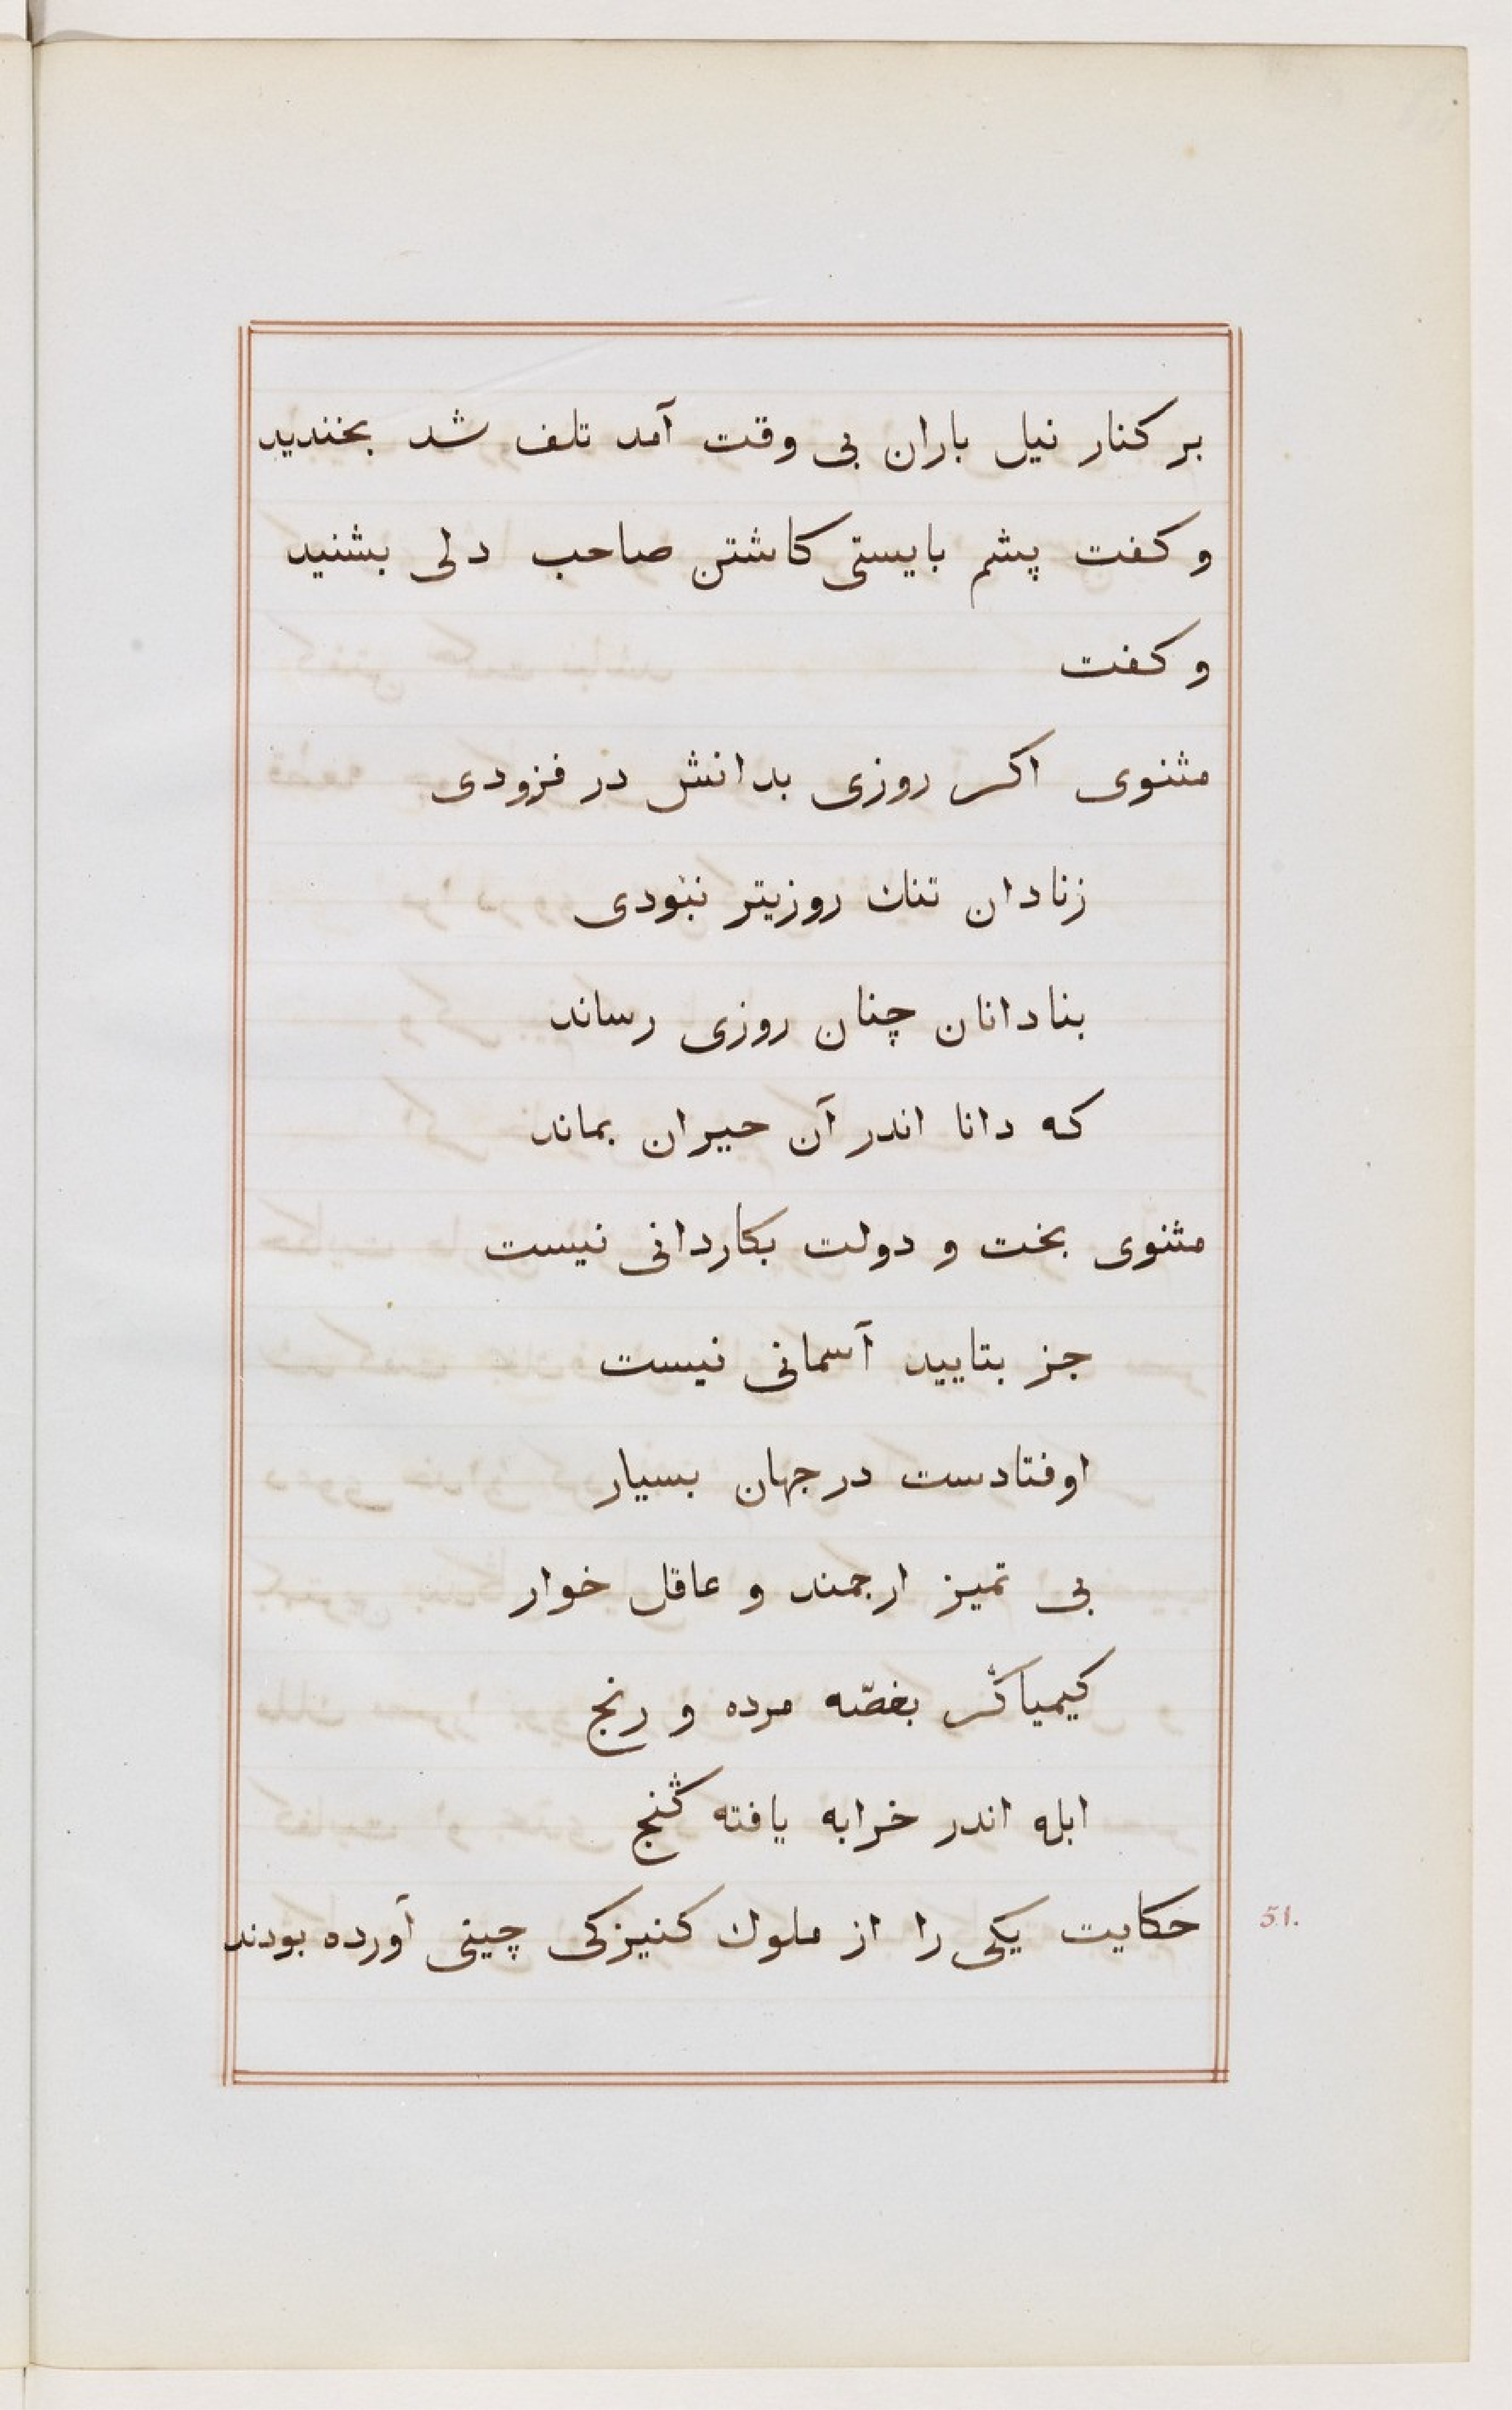 بر کنار نیل باران بی وقت آمد تلف شد بخندید
و کفت پشم بایستی کاشتن صاحب دلی بشنید
و کفت
مثنوی اکر روزی بدانش در فزودی
زنادان تنك روزیتر نبودی
بنادانان چنان روزی رساند
که دانا اندر آن حیران بماند
مثنوی بخت و دولت بکاردانی نیست
جز بتایید آسمانی نیست
اوفتادست در جهان بسیار
بی تمیز ارجمند و عاقل خوار
کیمیاگر بغصّه مرده و رنج
ابله اندر خرابه یافته گنج
حکایت یکی را از ملوك کنیزکی چینی آورده بودند
51.